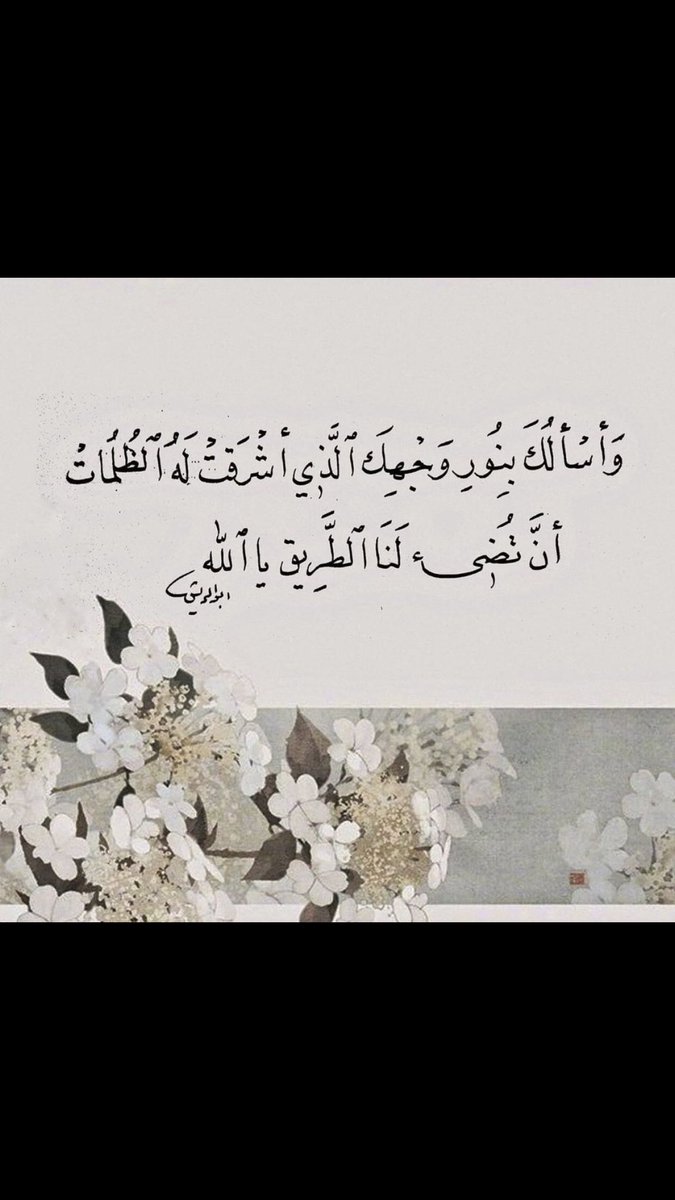 وَأسْألُكَ بِنُورِ وَجْهِكَ ٱلَّذِي أشْرَقَتْ لَهُ ٱلظُلُمَاتْ
أنَّ تُضِىء لَنَا ٱلطَّرِيق يا ٱلله